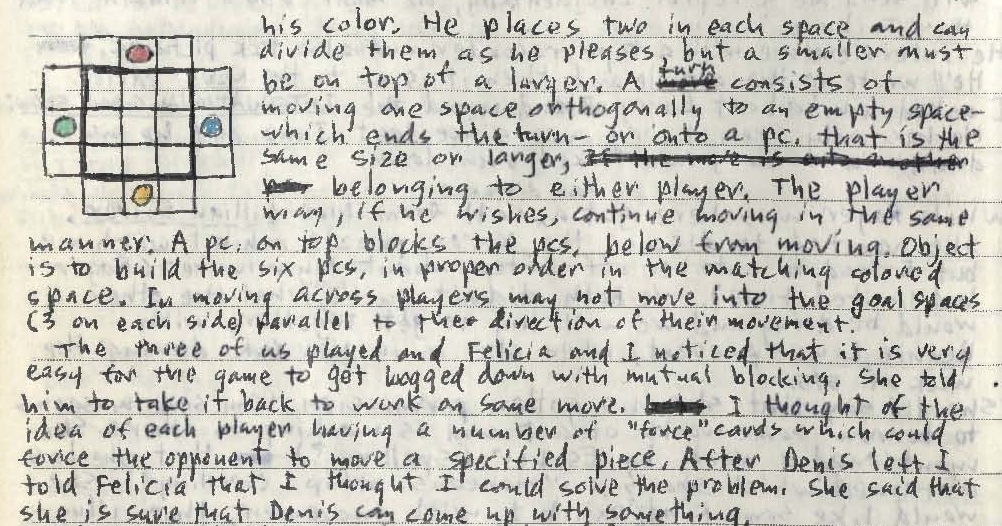 his color. He places two in each space and can
divide them as he pleases, but a smaller must
be on top of a larger. A turn consists of
moving one space orthogonally to an empty space-
which ends the turn- or onto a pc. that is the
same size or larger, If the move is onto another
belonging to either player. The player
may, if he wishes, continue moving in the same
manner. A pc. on top blocks the pcs. below from moving. Object
is to build the six pcs, in proper order in the matching colored
space. In moving across players may not move into the goal spaces
(3 on each side) parallel to the direction of their movement.
The three of us played and Felicia and I noticed that it is very
easy for the game to get bogged down with mutual blocking. She told
him to take it back to work on some more. I thought of the
idea of each player having a number of "force" cards which could
force the opponent to move a specified piece. After Denis left I
told Felicia that I thought I could solve the problem. She said that
she is sure that Denis can come up with something.